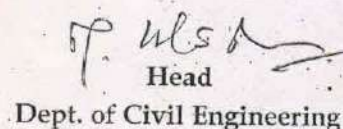 Head
Dept. of Civil Engineering